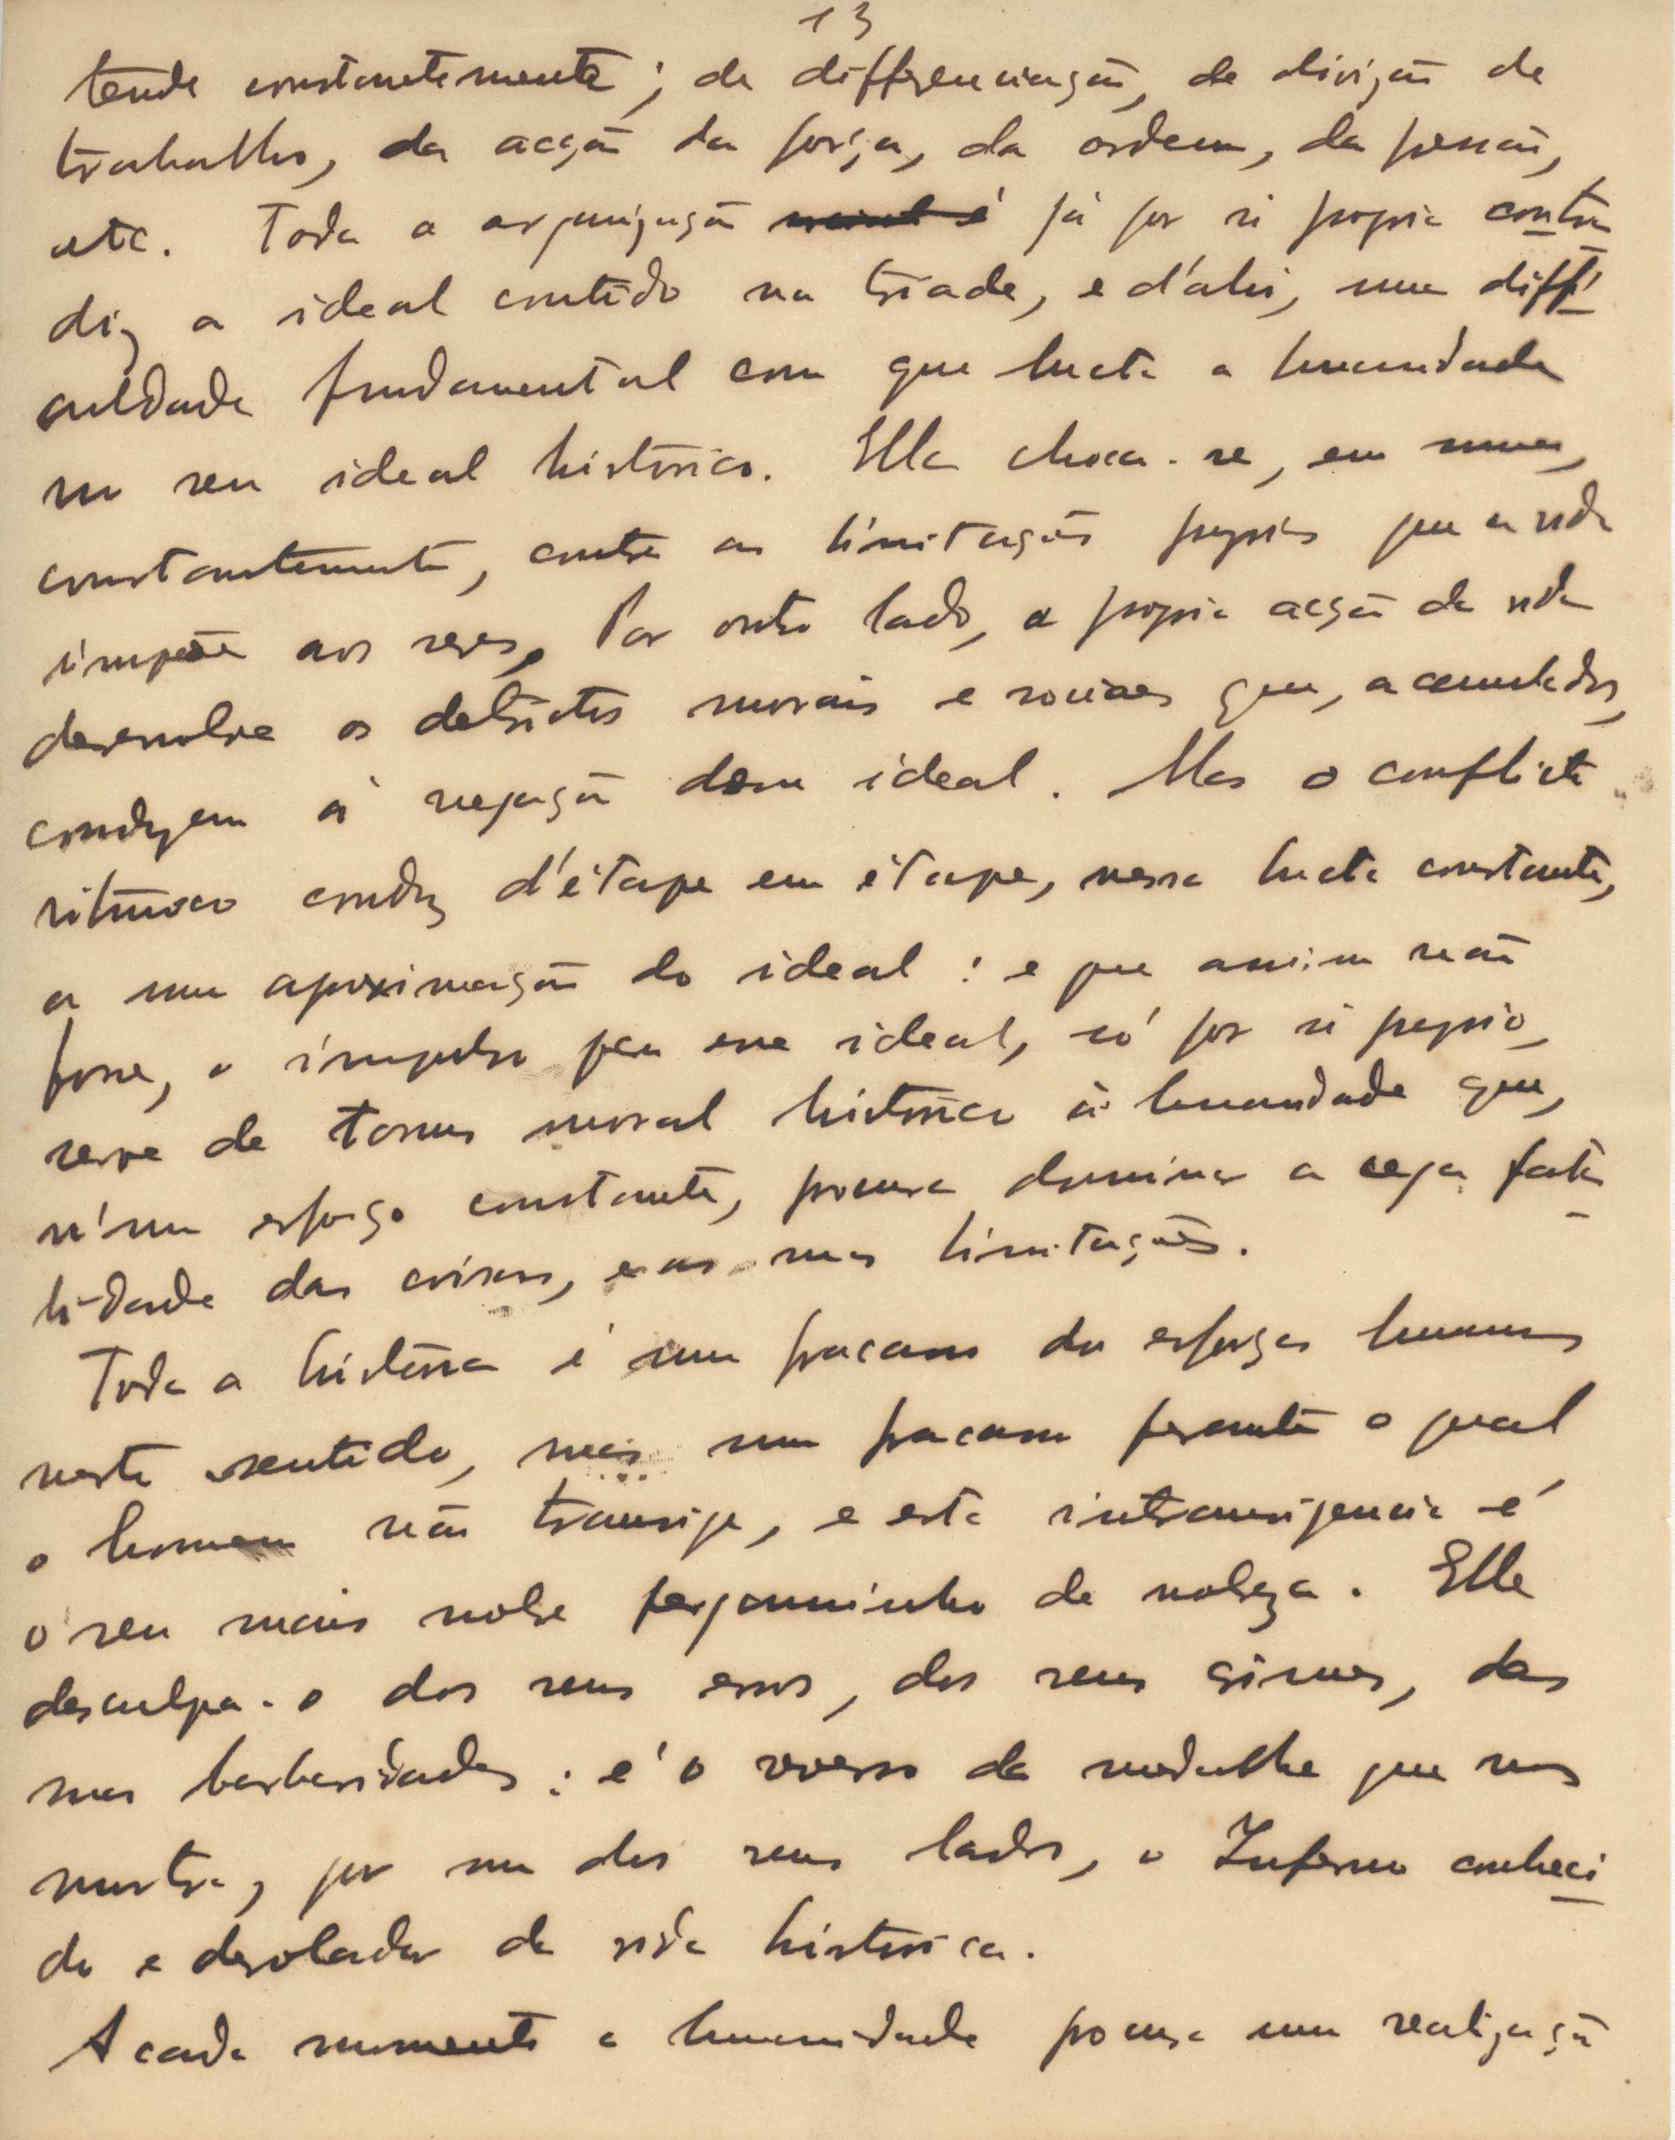 13
tende constantemente; da differenciação, da divizão de
trabalho, da acção da força, da ordem, da
etc. Toda a organização social é já por si propria contra
diz o ideal contido na triade, e d'ahi, uma diffi
culdade fundamental com que lucta a humanidade
no seu ideal historico. Ella choca-se, em suma,
constantemente, contra as limitações proprias que a vida
impõe aos seres. Por outro lado, a propria acção da vida
desenvolve os detrictos morais e sociaes que, acumulados,
conduzem á negação desse ideal. Mas o conflicto
ritmico conduz d'étape em étape, nessa lucta constante,
a uma aproximação do ideal: e que assim não
fosse, o impulso para esse ideal, só por si proprio,
serve de tonus moral historico á humanidade que,
n'um esforço constante, procura dominar a cega fata
lidade das coisas, e as suas limitações.
Toda a historia é um fracasso do esforço humano
neste sentido, mas um fracasso perante o qual
o homem não transige, e esta intransigencia é
o seu mais nobre pergaminho de nobreza. Ella
desculpa-o dos seus erros, dos seus crimes, das
suas barbaridades: é o verso da medalha que nos
mostra, por um dos seus lados, o Inferno conheci
do e desolador da vida historica.
A cada momento a humanidade procura uma realização